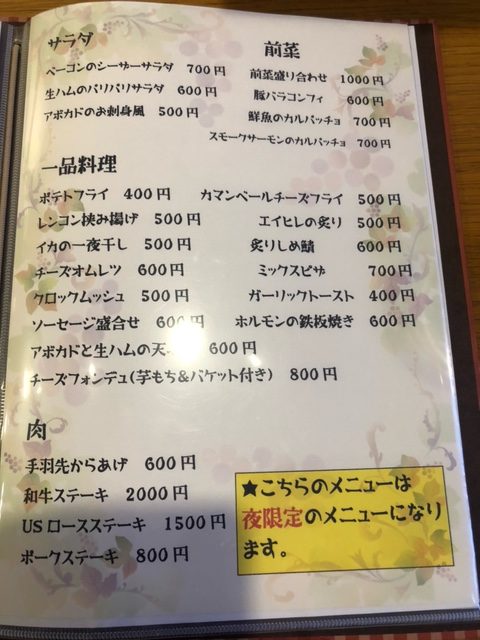 サラダ
ベーコンのシーザーサラダ 700円
生ハムのパリパリサラダ 600円
アボカドのお刺身風 500円
前菜
前菜盛り合わせ 1000円
豚バラコンフィ 600円
鮮魚のカルパッチョ 700円
スモークサーモンのカルパッチョ 700円
一品料理
ポテトフライ 400円
レンコン挟み揚げ 500円
イカの一夜干し 500円
チーズオムレツ 600円
クロックムッシュ 500円
ソーセージ盛合せ 600円
アボカドと生ハムの天 600円
チーズフォンデュ(芋もち&バケット付き) 800円
カマンベールチーズフライ 500円
エイヒレの炙り 500円
炙りしめ鯖 600円
ミックスピザ 700円
ガーリックトースト 400円
ホルモンの鉄板焼き 600円
肉
手羽先からあげ 600円
和牛ステーキ 2000円
USロースステーキ 1500円
ポークステーキ 800円
★こちらのメニューは
夜限定のメニューになり
ます。